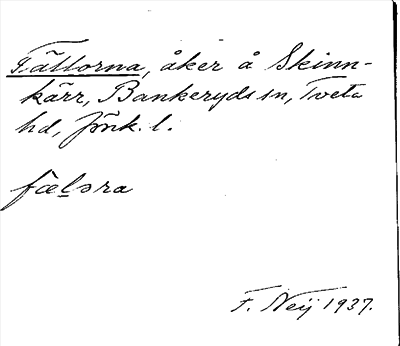 Fällorna, åker å Skinn-
kärr, Bankeryds sn, Tveta
hd, Jönk. l.
fæləra
F. Neij 1937.